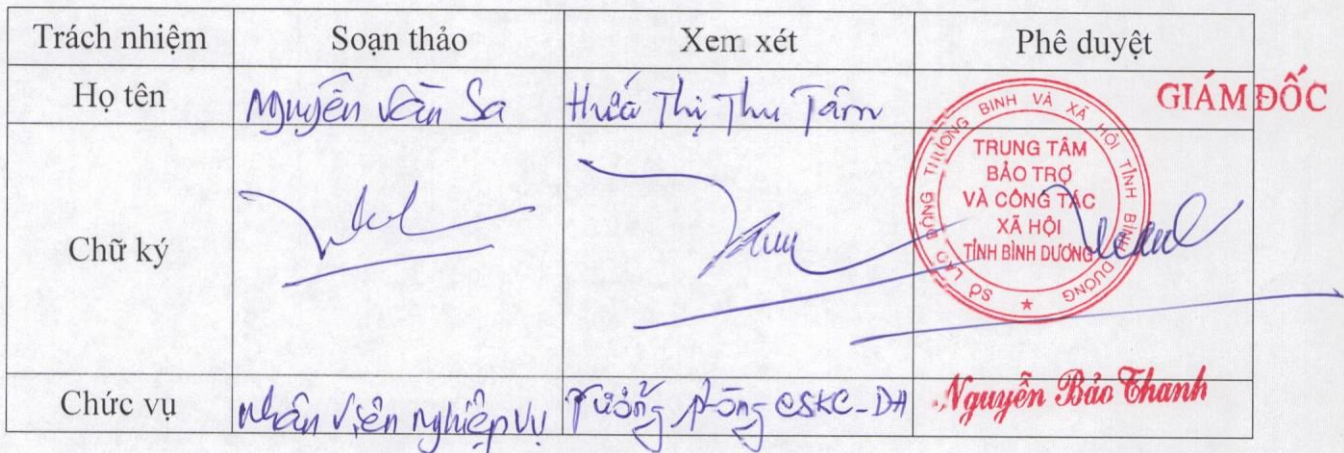 Trách nhiệm Soạn thảo Xem xét Phê duyệt
Họ tên Nguyễn Văn Sa Hứa Thị Thu Tâm GIÁM ĐỐC
SỞ LAO ĐỘNG THƯƠNG BINH VÀ XÃ HỘI TỈNH BÌNH DƯƠNG
TRUNG TÂM
BẢO TRỢ
VÀ CÔNG TÁC
XÃ HỘI
TỈNH BÌNH DƯƠNG
Chữ ký
Chức vụ Nhân viên nghiệp vụ Trưởng phòng CSKC-DH Nguyễn Bảo Thanh